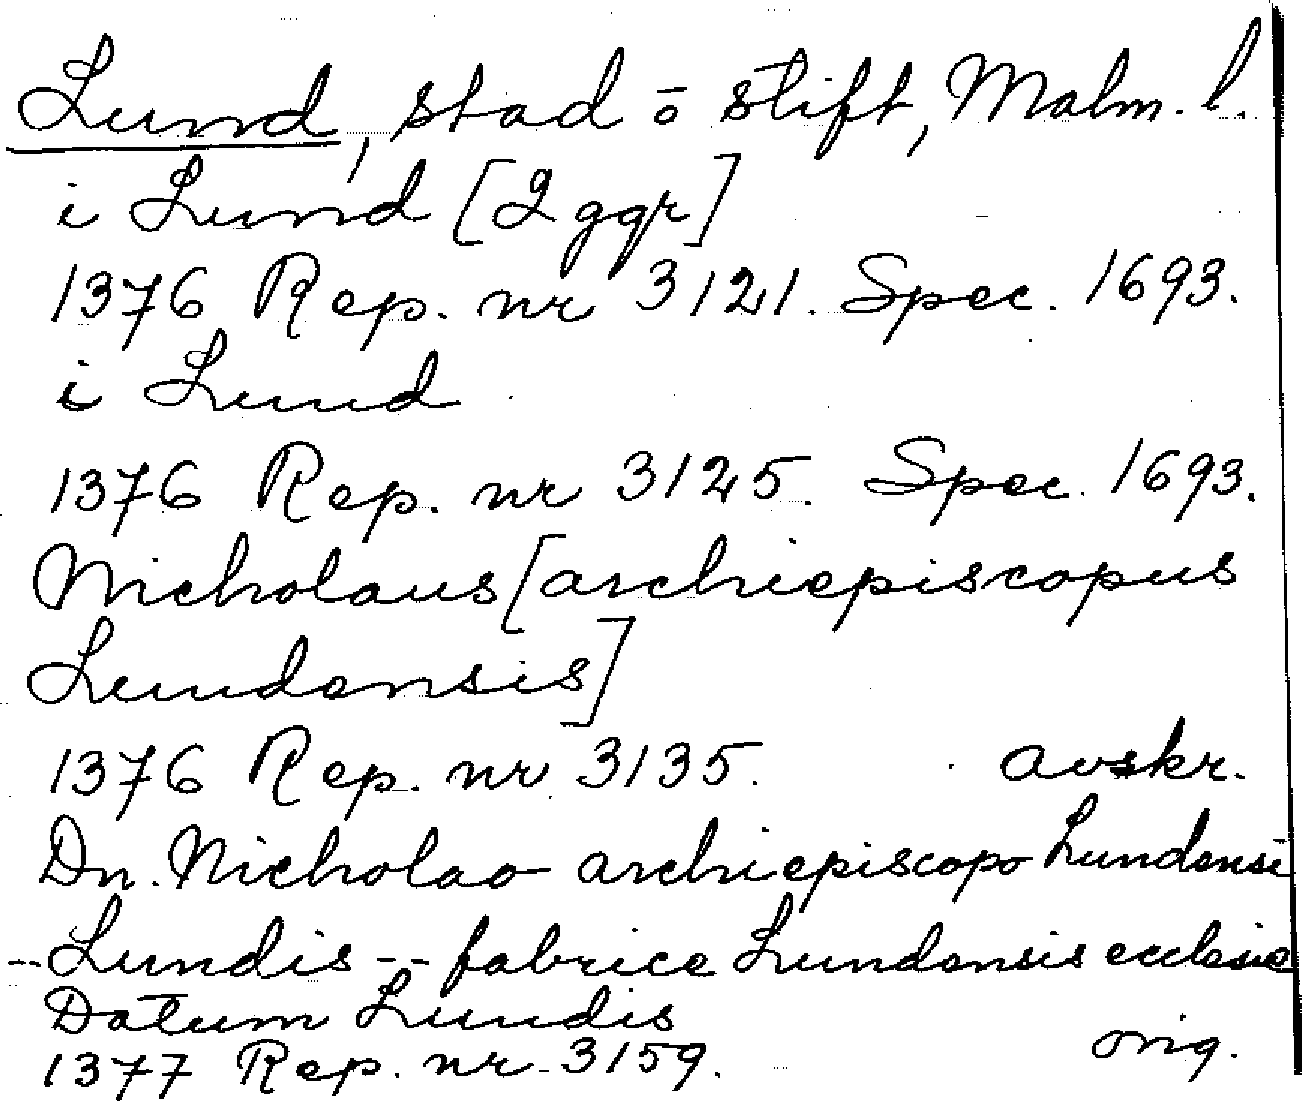 Lund, stad o stift, Malm. l.
i Lund [2 ggr]
1376 Rep. nr 3121. Spec. 1693.
i Lund
1376 Rep. nr 3125. Spec. 1693.
Nicholaus [archiepiscopus
Lundensis]
1376 Rep. nr 3135. avskr.
Dn. Nicholao archiepiscopo Lundensi
-- Lundis -- fabrice Lundensis ecclesie
Datum Lundis
1377 Rep. nr 3159. orig.